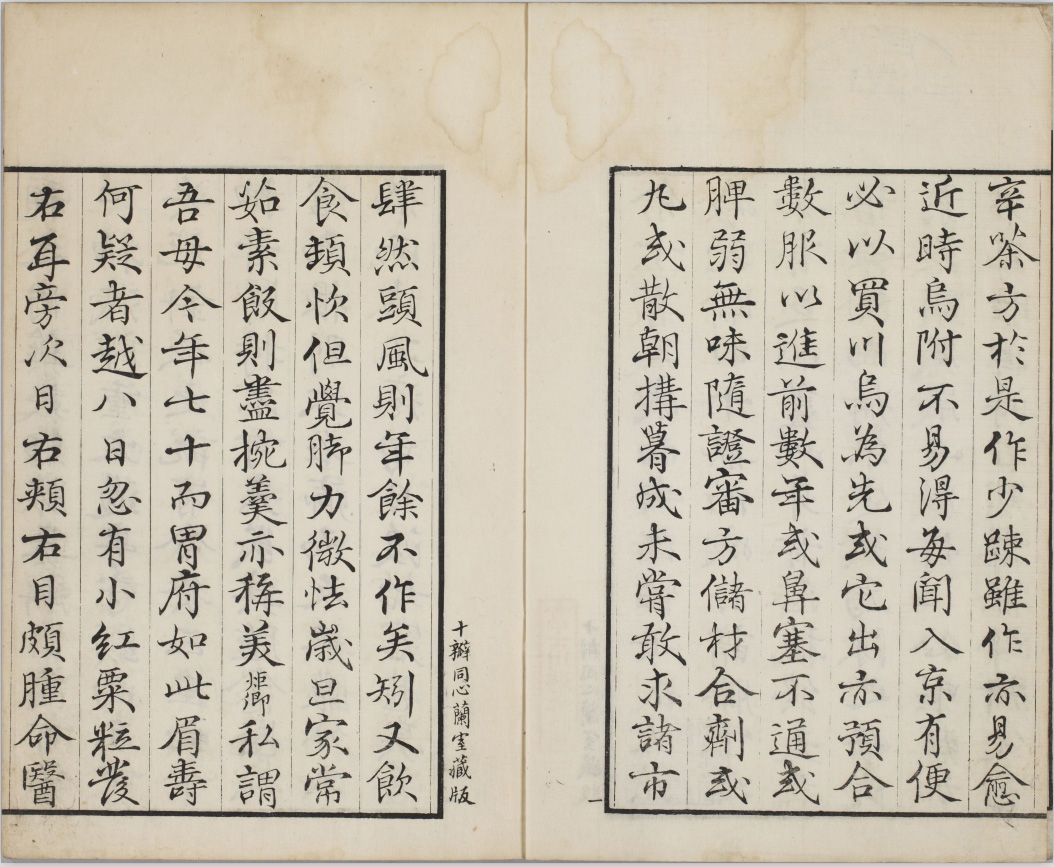 辛嗏方於是作少踈雖作亦易愈
近時烏附不易得每聞入京有便
必以買川烏為先或它出亦預合
數服以進前數年或鼻塞不通或
脾弱無味隨證審方儲材合劑或
丸或散朝搆暮成未嘗敢求諸市
十瓣同心蘭室藏版
肆然頭風則年餘不作矣矧又飲
食頗忺但覺脚力微怯歲旦家常
茹素飯則盡捥羹亦稱美炬卿私謂
吾母今年七十而胃府如此眉壽
何疑者越八日忽有小紅粟粒發
右耳旁次日右頰右目頗腫命醫